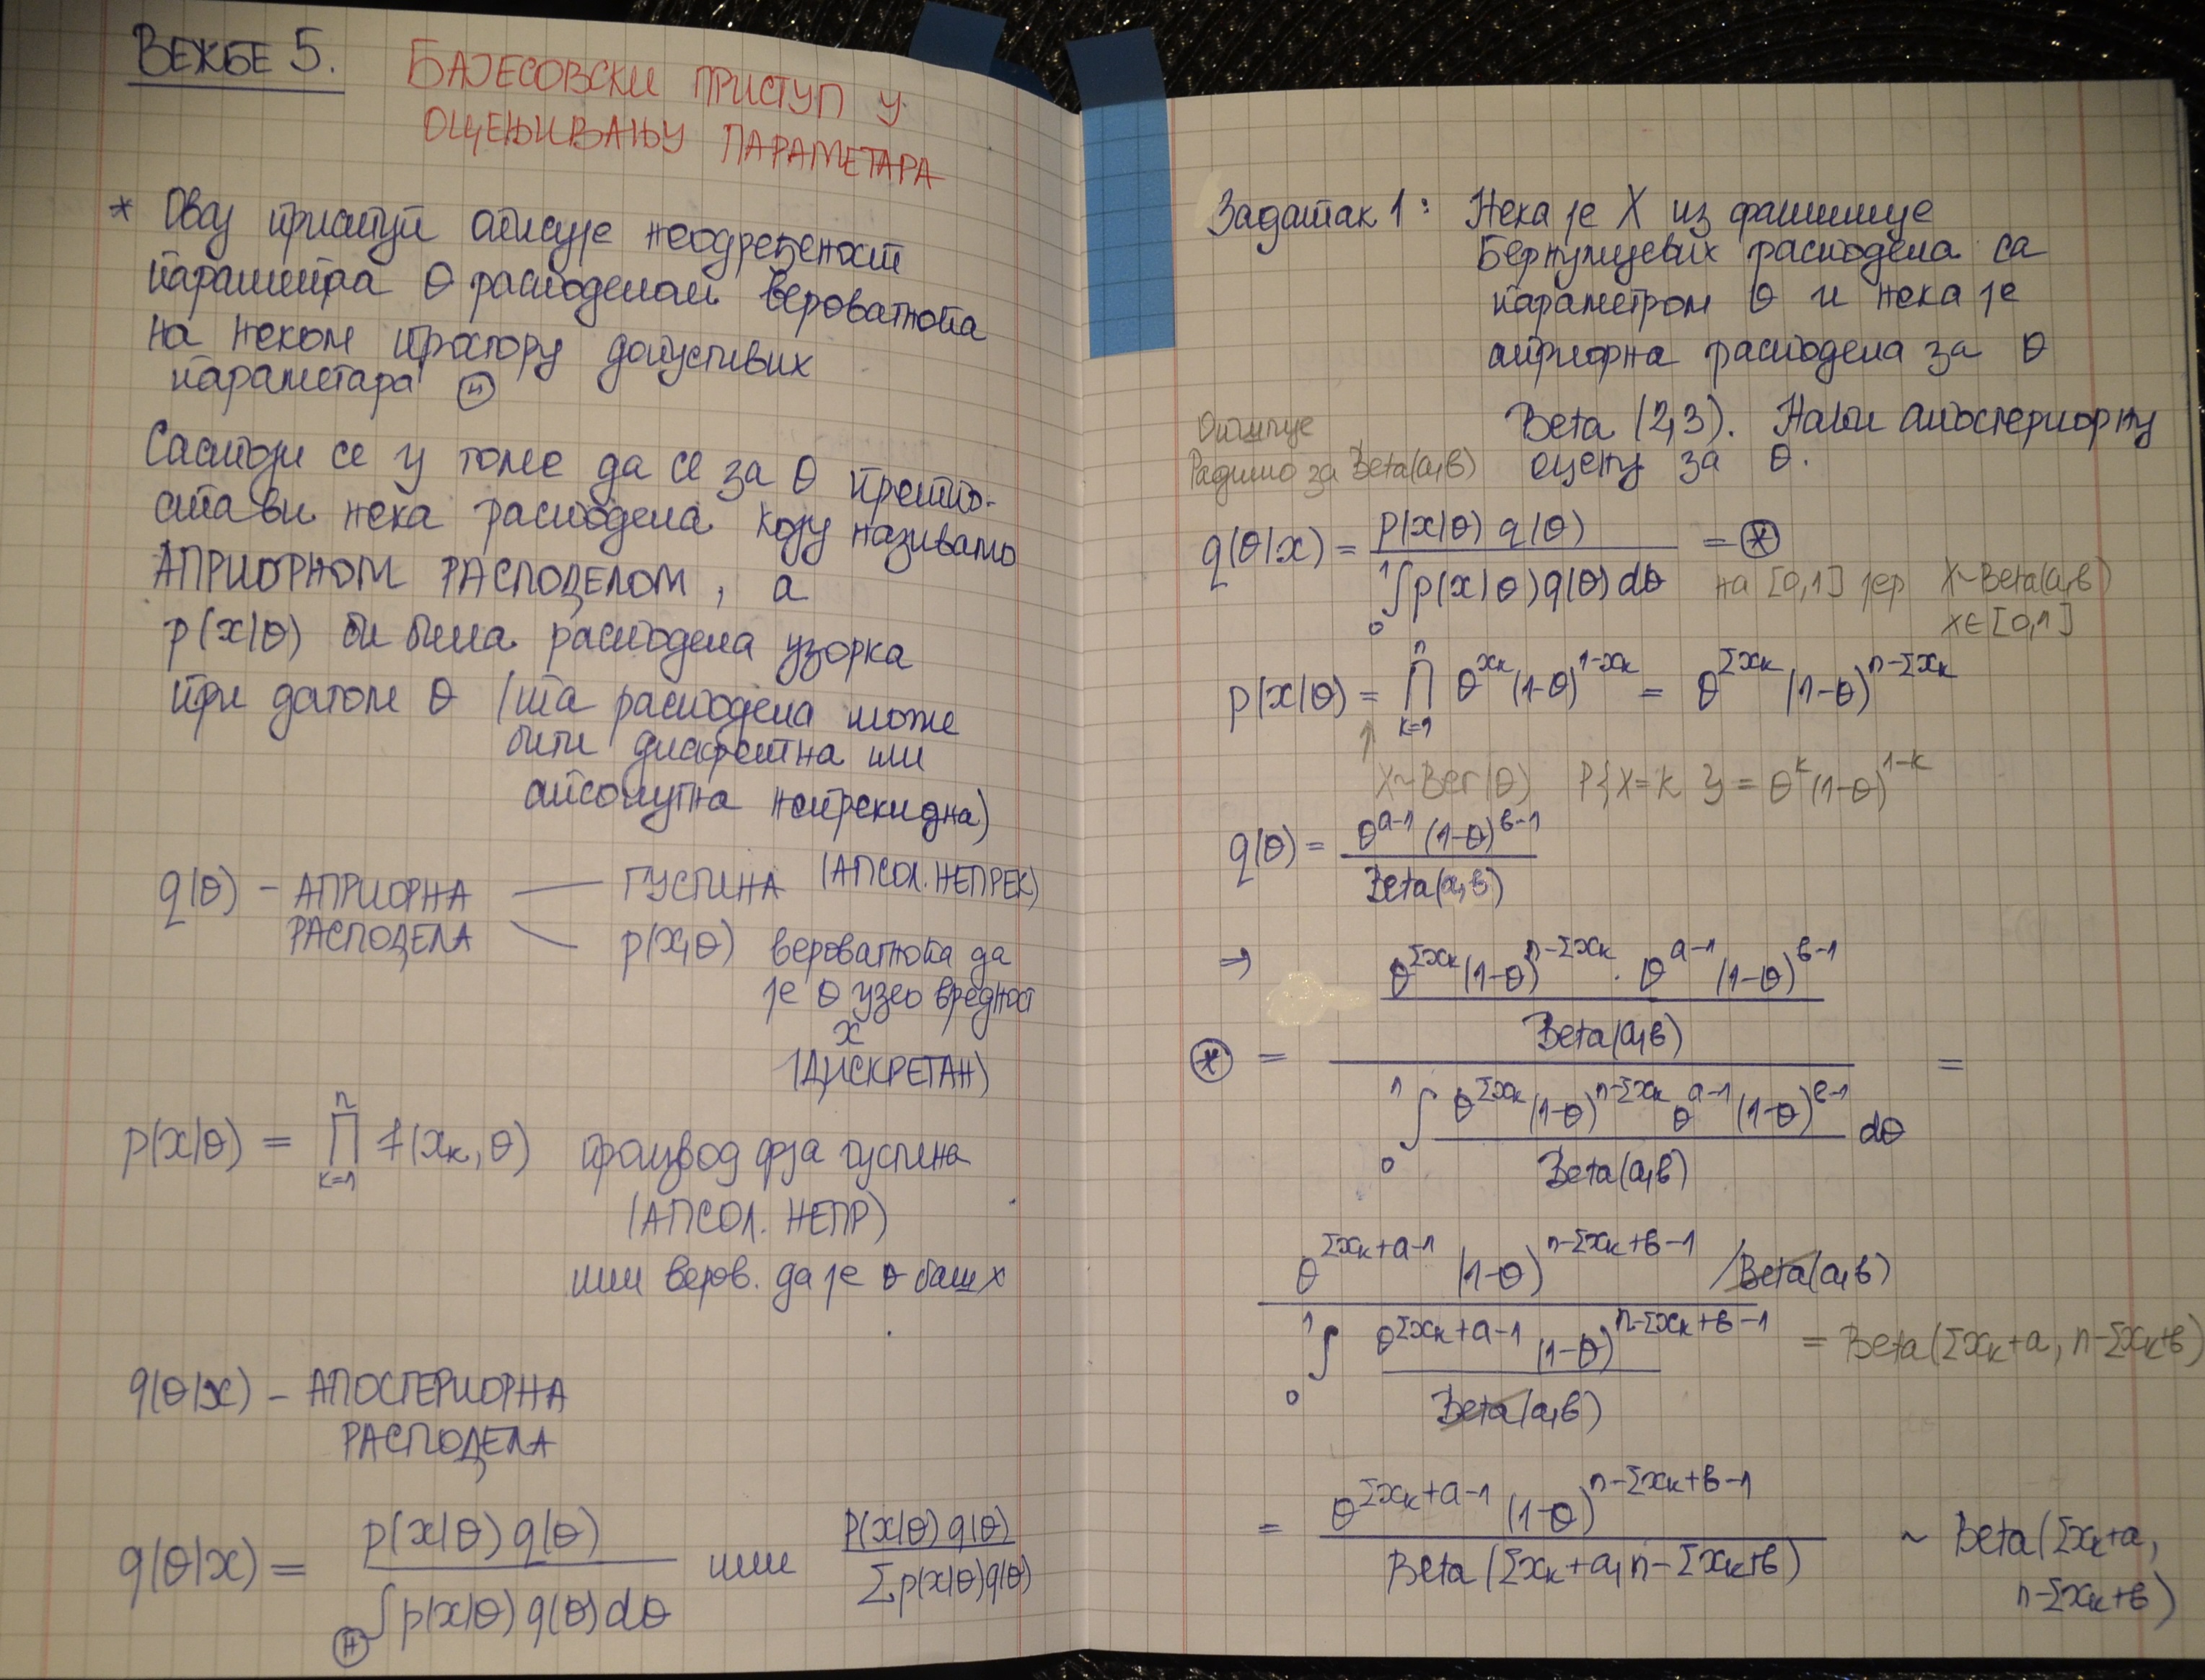 ВЕЖБЕ 5.
БАЈЕСОВСКИ ПРИСТУП У
ОЦЕЊИВАЊУ ПАРАМЕТАРА
* Овај приступ описује неодређеност
параметра θ расподелом вероватноћа
на неком простору допустивих
параметара Ⓗ
Састоји се у томе да се за θ претпо-
стави нека расподела коју називамо
АПРИОРНОМ РАСПОДЕЛОМ, а
p(x|θ) би била расподела узорка
при датом θ (та расподела може
бити дискретна или
апсолутна непрекидна)
q(θ) - АПРИОРНА — ГУСТИНА (АПСОЛ. НЕПРЕК)
РАСПОДЕЛА \ p(x,θ) вероватноћа да
је θ узео вредност
x
(ДИСКРЕТАН)
p(x|θ) = ∏_{k=1}^{n} f(x_k, θ) производ фја густина
(АПСОЛ. НЕПР)
или веров. да је θ баш x
q(θ|x) - АПОСТЕРИОРНА
РАСПОДЕЛА
q(θ|x) = p(x|θ) q(θ) / ∫_Ⓗ p(x|θ) q(θ) dθ или p(x|θ) q(θ) / Σ p(x|θ) q(θ)
Задатак 1: Нека је X из фамилије
Бернулијевих расподела са
параметром θ и нека је
априорна расподела за θ
Beta (2,3). Наћи апостериорну
оцену за θ.
Општије
Радимо за Beta(a,b)
q(θ|x) = p(x|θ) q(θ) / ∫_0^1 p(x|θ) q(θ) dθ = ⊛
на [0,1] јер X~Beta(a,b)
x∈[0,1]
p(x|θ) = ∏_{k=1}^{n} θ^{x_k} (1-θ)^{1-x_k} = θ^{Σx_k} (1-θ)^{n-Σx_k}
↑
X~Ber(θ) P{X=k} = θ^k (1-θ)^{1-k}
q(θ) = θ^{a-1} (1-θ)^{b-1} / Beta(a,b)
⇒
⊛ = (θ^{Σx_k} (1-θ)^{n-Σx_k} · θ^{a-1} (1-θ)^{b-1} / Beta(a,b)) / (∫_0^1 θ^{Σx_k} (1-θ)^{n-Σx_k} θ^{a-1} (1-θ)^{b-1} / Beta(a,b) dθ) =
θ^{Σx_k+a-1} (1-θ)^{n-Σx_k+b-1} / Beta(a,b)
∫_0^1 θ^{Σx_k+a-1} (1-θ)^{n-Σx_k+b-1} / Beta(a,b) = Beta(Σx_k+a, n-Σx_k+b)
= θ^{Σx_k+a-1} (1-θ)^{n-Σx_k+b-1} / Beta(Σx_k+a, n-Σx_k+b) ~ Beta(Σx_k+a,
n-Σx_k+b)